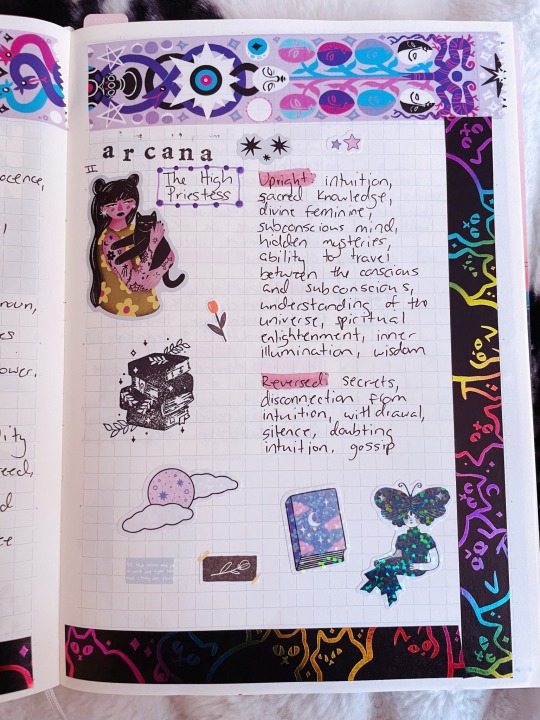 arcana
II
The High
Priestess
Upright: intuition,
sacred knowledge,
divine feminine,
subconscious mind,
hidden mysteries,
ability to travel
between the conscious
and subconscious,
understanding of the
universe, spiritual
enlightenment, inner
illumination, wisdom
Reversed: secrets,
disconnection from
intuition, withdrawal,
silence, doubting
intuition, gossip